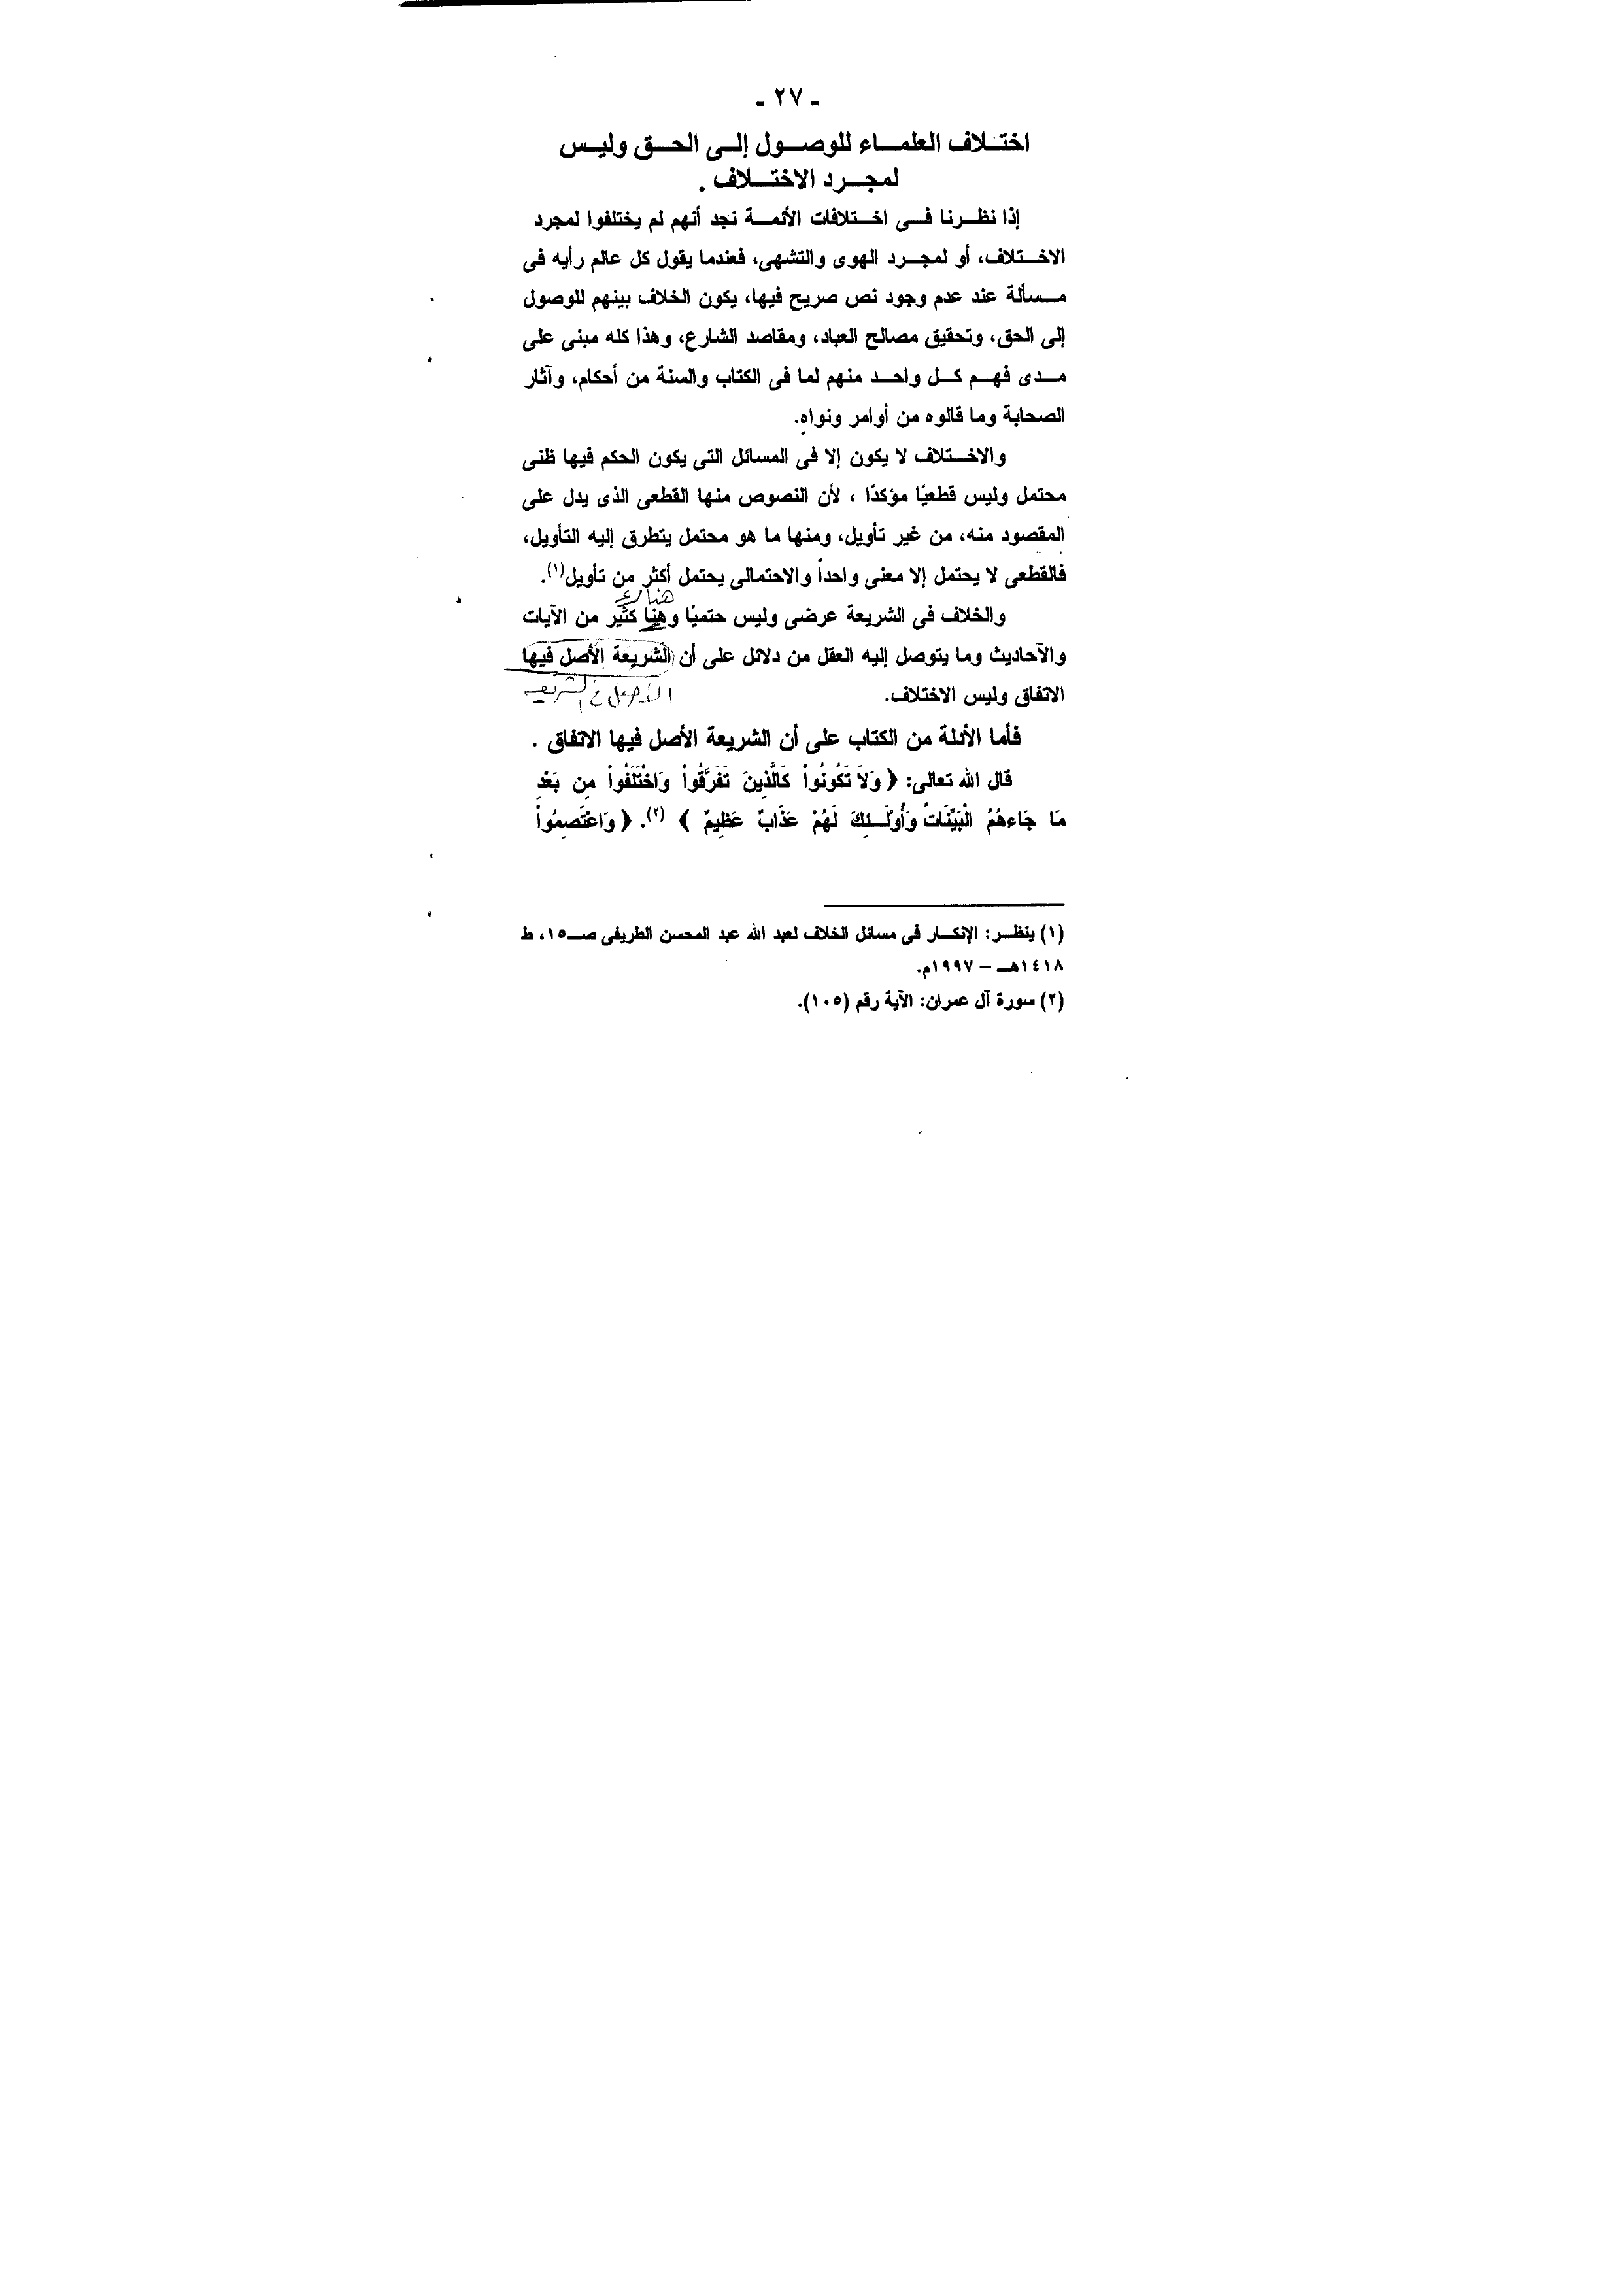 - ٢٧ -
اختلاف العلماء للوصول إلى الحق وليس
لمجرد الاختلاف .
إذا نظرنا فى اختلافات الأئمة نجد أنهم لم يختلفوا لمجرد
الاختلاف، أو لمجرد الهوى والتشهى، فعندما يقول كل عالم رأيه فى
مسألة عند عدم وجود نص صريح فيها، يكون الخلاف بينهم للوصول
إلى الحق، وتحقيق مصالح العباد، ومقاصد الشارع، وهذا كله مبنى على
مدى فهم كل واحد منهم لما فى الكتاب والسنة من أحكام، وآثار
الصحابة وما قالوه من أوامر ونواهٍ.
والاختلاف لا يكون إلا فى المسائل التى يكون الحكم فيها ظنى
محتمل وليس قطعيًا مؤكدًا ، لأن النصوص منها القطعى الذى يدل على
المقصود منه، من غير تأويل، ومنها ما هو محتمل يتطرق إليه التأويل،
فالقطعى لا يحتمل إلا معنى واحداً والاحتمالى يحتمل أكثر من تأويل(١).
والخلاف فى الشريعة عرضى وليس حتميًا وهنا كثير من الآيات
والآحاديث وما يتوصل إليه العقل من دلائل على أن الشريعة الأصل فيها
الاتفاق وليس الاختلاف.
فأما الأدلة من الكتاب على أن الشريعة الأصل فيها الاتفاق .
قال الله تعالى: ﴿ وَلاَ تَكُونُواْ كَالَّذِينَ تَفَرَّقُواْ وَاخْتَلَفُواْ مِن بَعْدِ
مَا جَاءهُمُ الْبَيِّنَاتُ وَأُوْلَـئِكَ لَهُمْ عَذَابٌ عَظِيمٌ ﴾ (٢). ﴿ وَاعْتَصِمُواْ
(١) ينظر: الإنكار فى مسائل الخلاف لعبد الله عبد المحسن الطريفى صـ١٥، ط
١٤١٨هـ - ١٩٩٧م.
(٢) سورة آل عمران: الآية رقم (١٠٥).